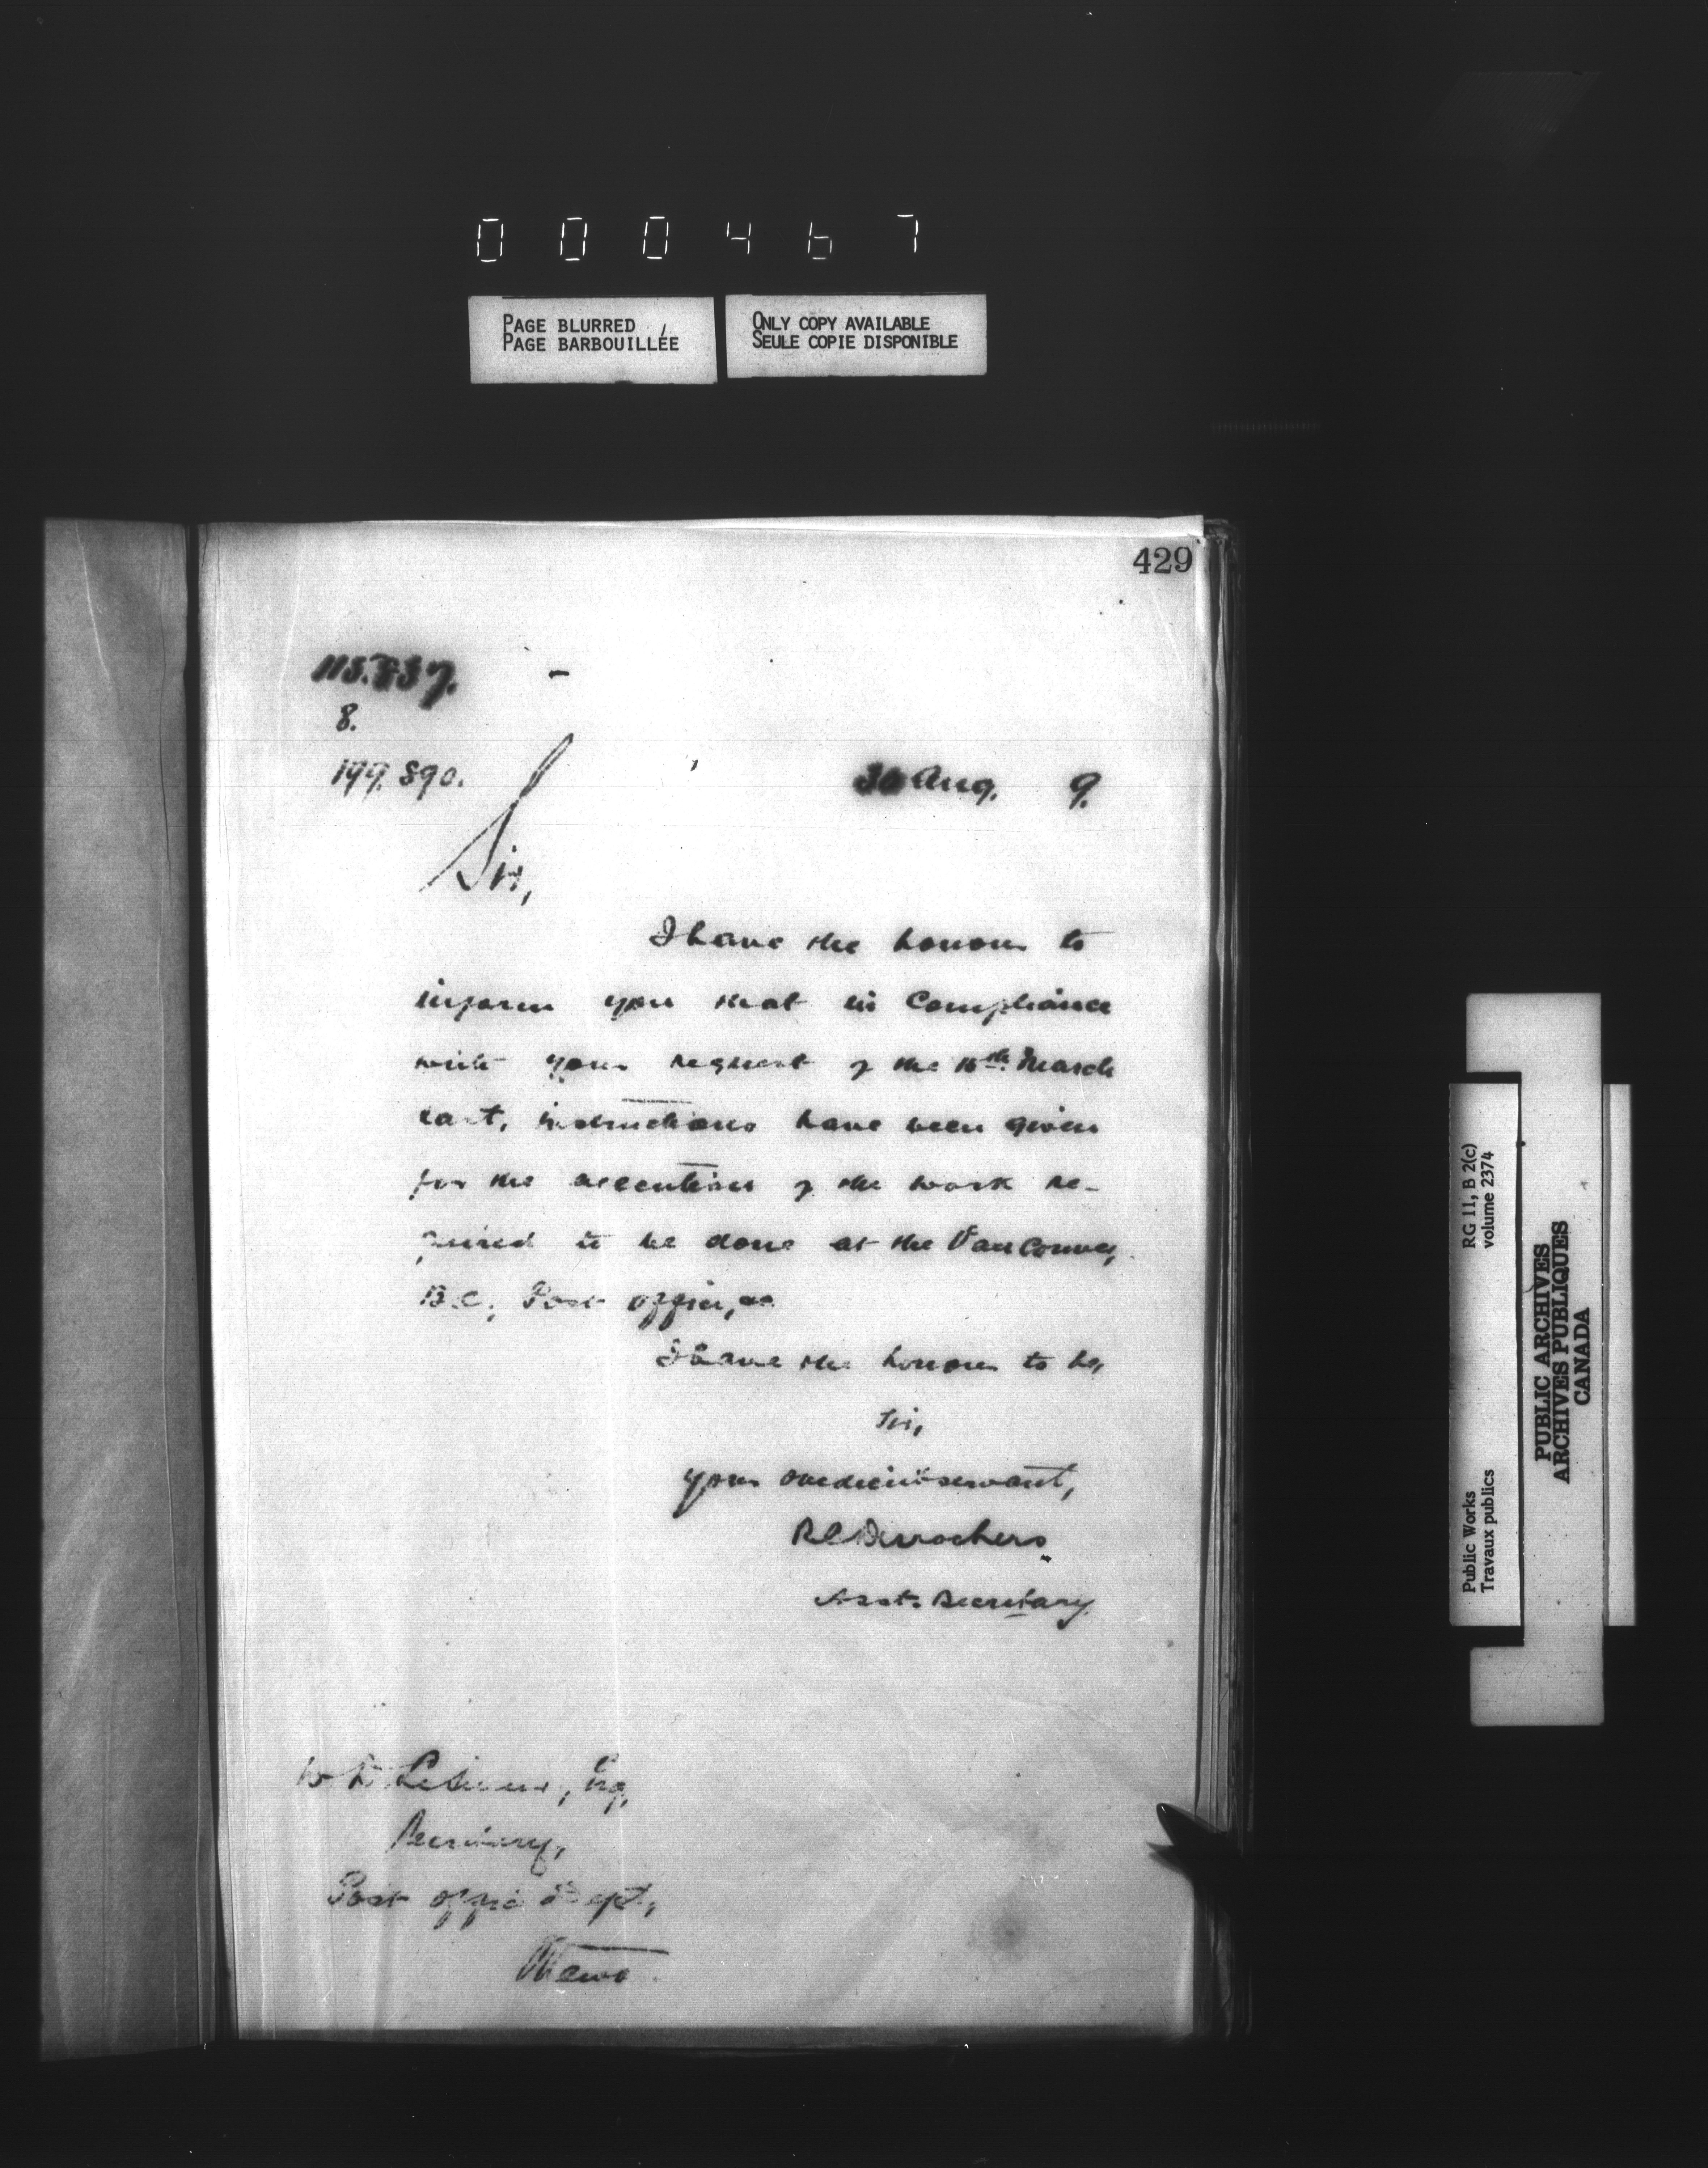 000467
PAGE BLURRED
PAGE BARBOUILLÉE
ONLY COPY AVAILABLE
SEULE COPIE DISPONIBLE
429
8.
199.890.
30 Aug. 9.
Sir,
I have the honour to
inform you that in compliance
with your request of the 16th March
last, instructions have been given
for the execution of the work re-
quired to be done at the Vancouver,
B.C., Post office, &c
I have the honour to be,
Sir,
your obedient servant,
RC Desrochers
Asst. Secretary
W D LeSueur, Esq,
Secretary,
Post office Dept,
Ottawa.
Public Works
Travaux publics
RG 11, B 2(c)
volume 2374
PUBLIC ARCHIVES
ARCHIVES PUBLIQUES
CANADA